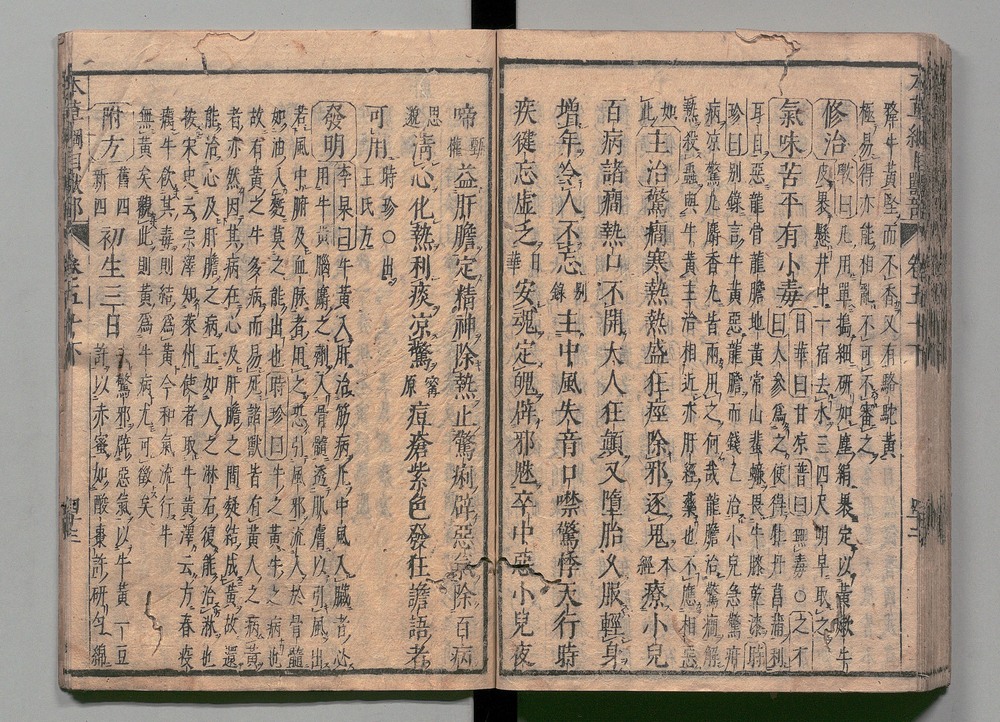 本草綱目獸部 卷五十下 四十二
犛牛黃堅而不香又有駱駝黃
極易得亦能相亂不可不審之
修治 斅曰凡用單搗細研如塵絹裹定以黃嫩牛
皮裹懸井中一宿去水三四尺明早取之
氣味苦平有小毒 日華曰甘凉普曰無毒○之才
曰人參爲之使得牡丹菖蒲利
耳目惡龍骨龍膽地黃常山蜚蠊畏牛膝乾漆時
珍曰別錄言牛黃惡龍膽而錢乙治小兒急驚疳
病凉驚丸麝香丸皆兩用之何哉龍膽治驚癇解
熱殺蟲與牛黃主治相近亦肝經藥也不應相惡
如此 主治驚癇寒熱熱盛狂痓除邪逐鬼 本經 療小兒
百病諸癇熱口不開大人狂顚又墮胎久服輕身
增年令人不忘 別錄 主中風失音口噤驚悸天行時
疾健忘虛乏 日華 安魂定魄辟邪魅卒中惡小兒夜
啼 甄權 益肝膽定精神除熱止驚痢辟惡氣除百病
思邈 清心化熱利痰凉驚 甯原 痘瘡紫色發狂譫語者
可用 時珍○出王氏方
發明 李杲曰牛黃入肝治筋病凡中風入臟者必
用牛黃腦麝之劑入骨髓透肌膚以引風出
若風中腑及血脉者用之恐引風邪流入於骨髓
如油入麪莫之能出也時珍曰牛之黃牛之病也
故有黃之牛多病而易死諸獸皆有黃人之病黃
者亦然因其病在心及肝膽之間凝結成黃故還
能治心及肝膽之病正如人之淋石復能治淋也
按宋史云宗澤知萊州使者取牛黃澤云方春疫
癘牛飲其毒則結爲黃今和氣流行牛
無黃矣觀此則黃爲牛病尤可徵矣
附方 舊四新四 初生三日 去驚邪辟惡氣以牛黃一豆
許以赤蜜如酸棗許研勻綿
本草綱目獸部 卷五十下 四十三